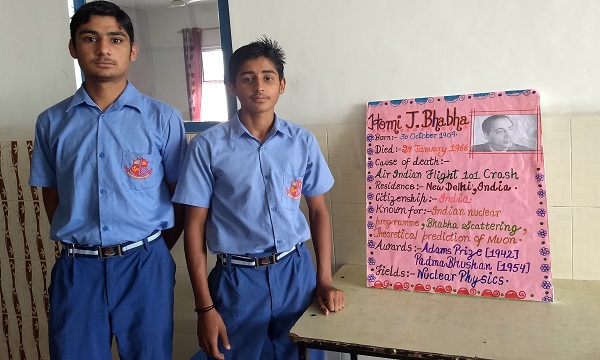 Homi J. Bhabha
Born:- 30 October 1909
Died:- 24 January 1966
Cause of death:-
Air Indian Flight 101 Crash
Residence:- New Delhi, India.
Citizenship:- India.
Known for:- Indian nuclear
programme, Bhabha Scattering,
Theoretical prediction of Muon.
Awards:- Adams Prize [1942]
Padma Bhushan [1954]
Fields:- Nuclear Physics.